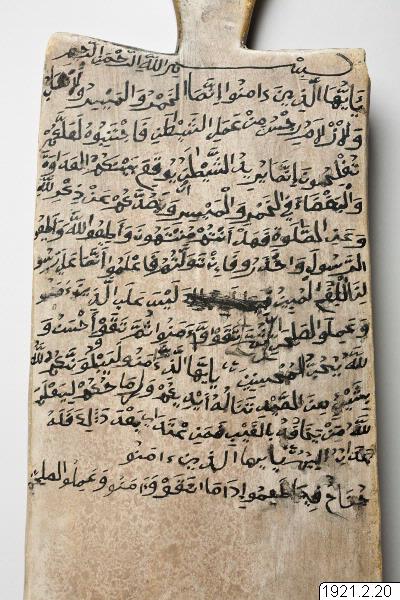 بسم الله الرحمن الرحيم
يأيها الذين ءامنوا إنما الخمر والميسر والأنصاب
والأزلام رجس من عمل الشيطن فاجتنبوه لعلكم
تفلحون إنما يريد الشيطن أن يوقع بينكم العداوة
والبغضاء في الخمر والميسر ويصدكم عن ذكر الله
وعن الصلوة فهل أنتم منتهون وأطيعوا الله وأطيعوا
الرسول واحذروا فإن توليتم فاعلموا أنما على رسو
لنا البلغ المبين ليس على الذين ءامنوا
وعملوا الصلحت ثم اتقوا وءامنوا ثم اتقوا وأحسنوا و
الله يحب المحسنين يأيها الذين ءامنوا ليبلونكم الله
بشيء من الصيد تناله أيديكم ورماحكم ليعلم
الله من يخافه بالغيب فمن اعتدى بعد ذلك فله
عذاب أليم يأيها الذين ءامنوا
جناح فيما طعموا إذا ما اتقوا وءامنوا وعملوا الصلحت
1921.2.20